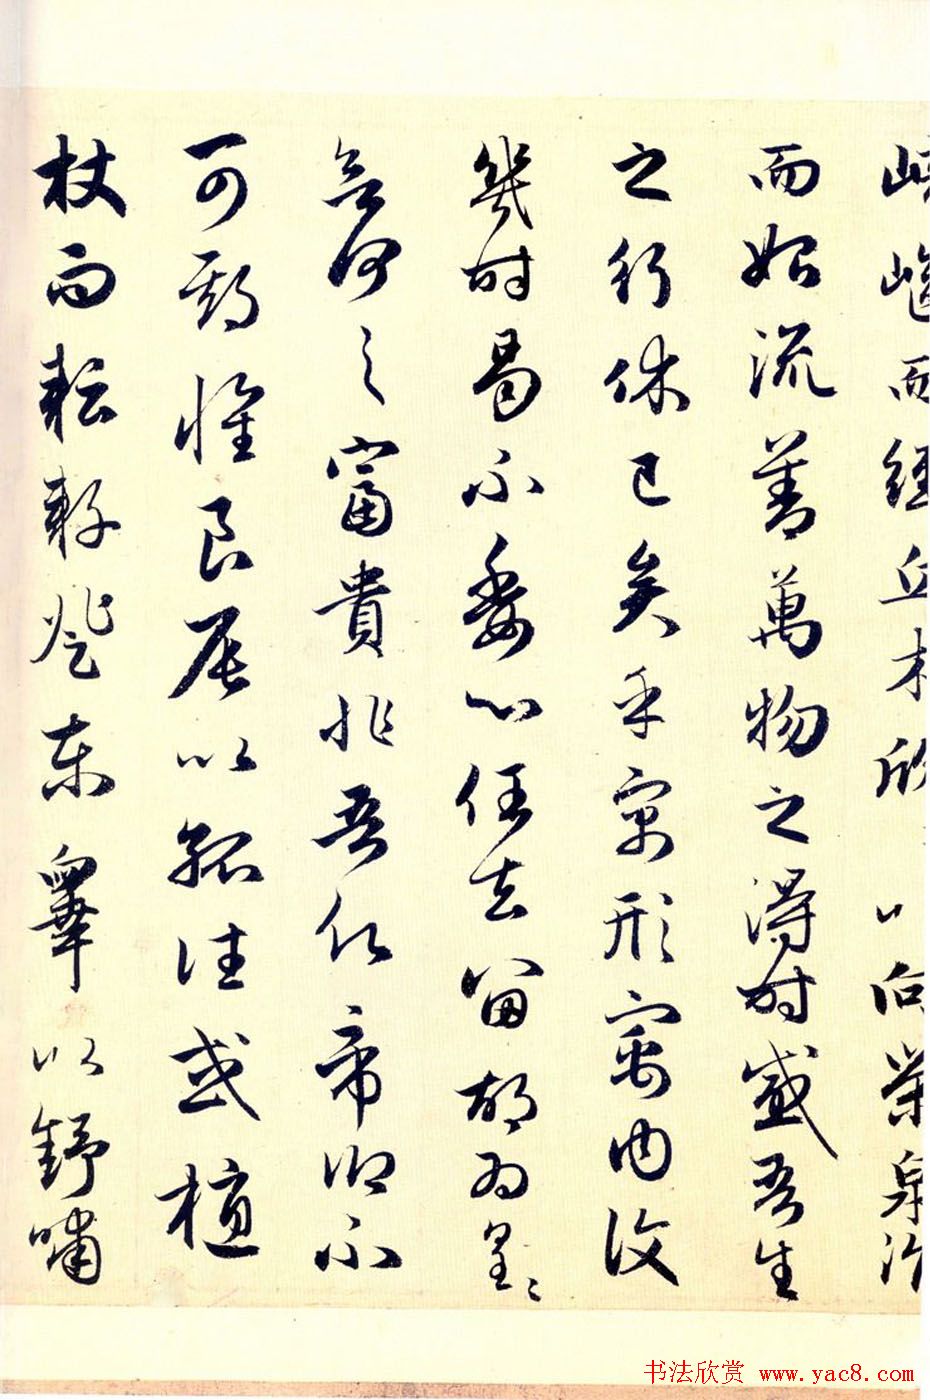 崎嶇而經丘木欣以向榮泉涓
而始流善萬物之得時感吾生
之行休已矣乎寓形寓内復
幾時曷不委心任去留胡為皇〻
欲何之富貴非吾願帝鄉不
可期懷良辰以孤往或植
杖而耘耔登東皋以舒嘯
书法欣赏 www.yac8.com